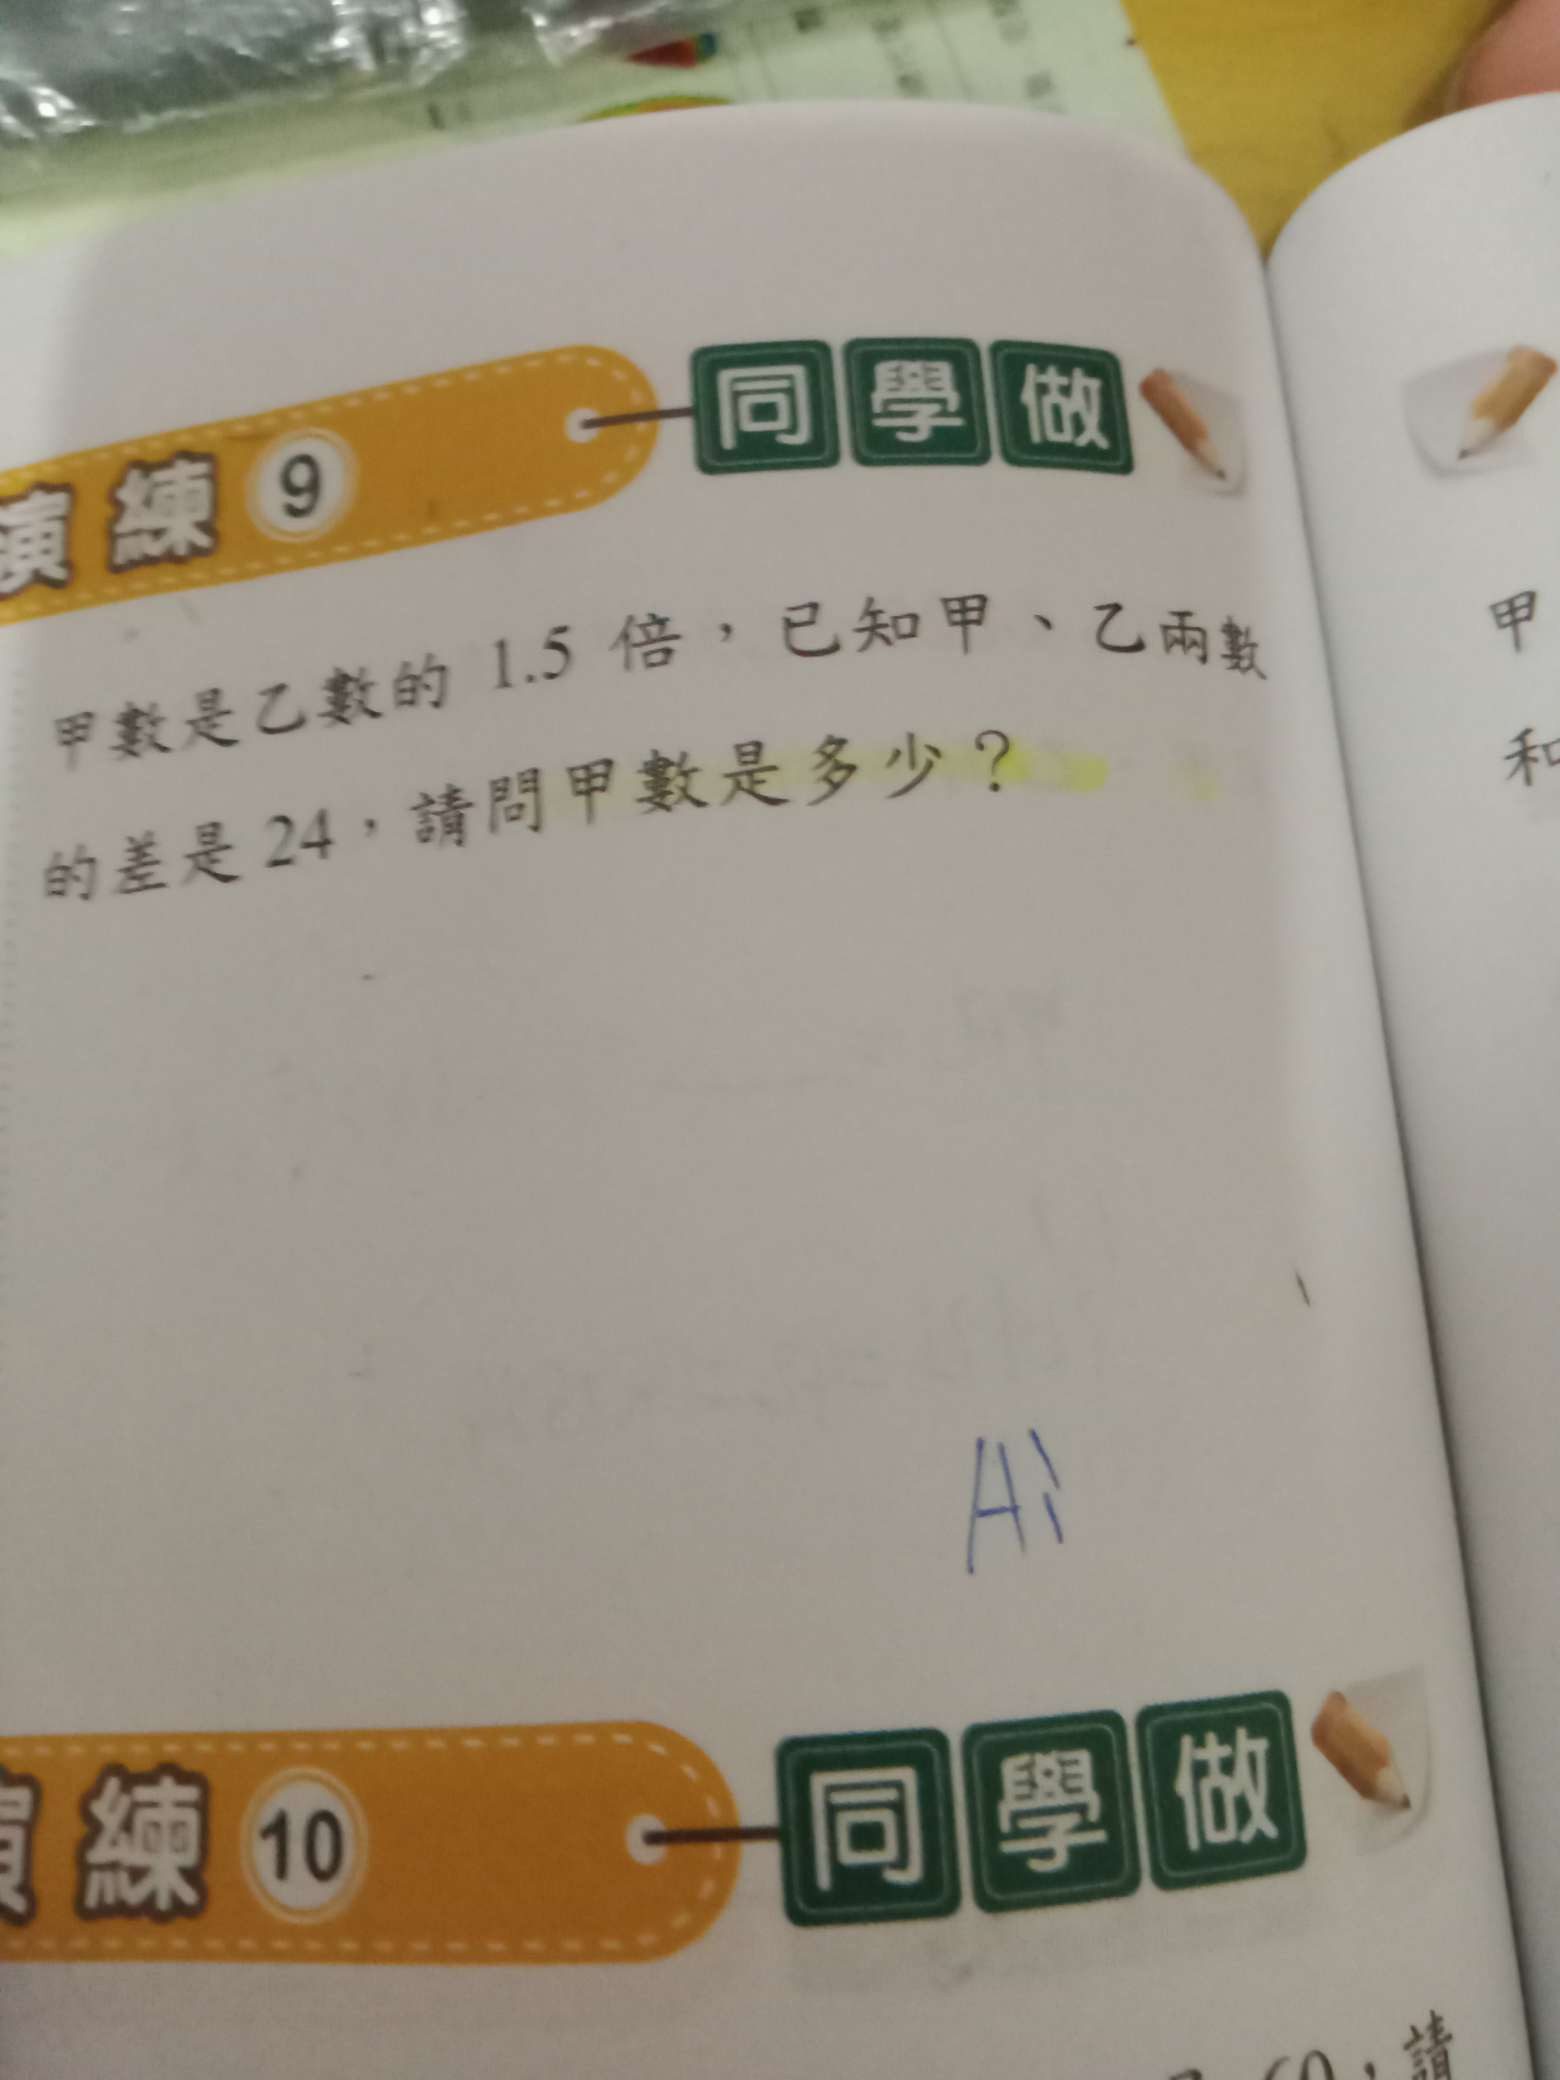 練 9 同學做
甲數是乙數的 1.5 倍，已知甲、乙兩數
的差是 24，請問甲數是多少？
A:
練 10 同學做
60，請
甲
和